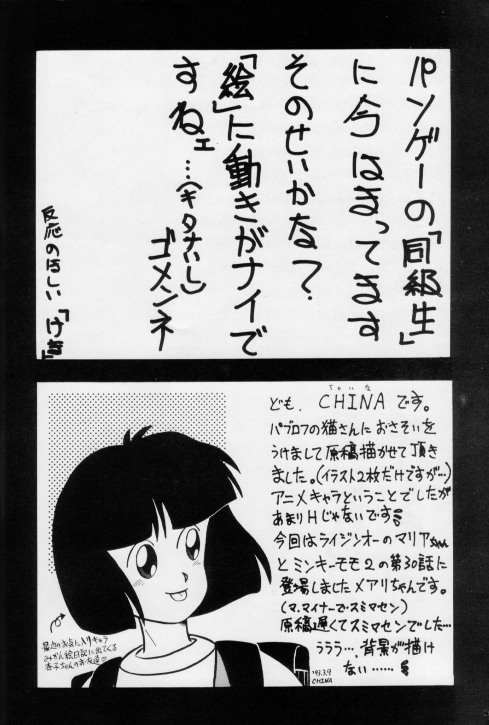 パンゲーの「同級生」
に今はまってます
そのせいかな？
「絵」に動きがナイで
すねェ…(キタナいし)
ゴメンネ
反応のほしい「けき」
ちゃいな
ども、CHINAです。
パブロフの猫さんにおさそいを
うけまして原稿描かせて頂き
ました。(イラスト2枚だけですが…)
アニメキャラということでしたが
あまりHじゃないです
今回はライジンオーのマリアちゃん
とミンキーモモ2の第30話に
登場しましたメアリちゃんです。
(マ、マイナーでスミマセン)
原稿遅くてスミマセンでした…
ううう…、背景が描け
ない……
最近のお気に入りキャラ
みかん絵日記に出てくる
杏子ちゃんのお友達♡
'93.3.9
CHINA